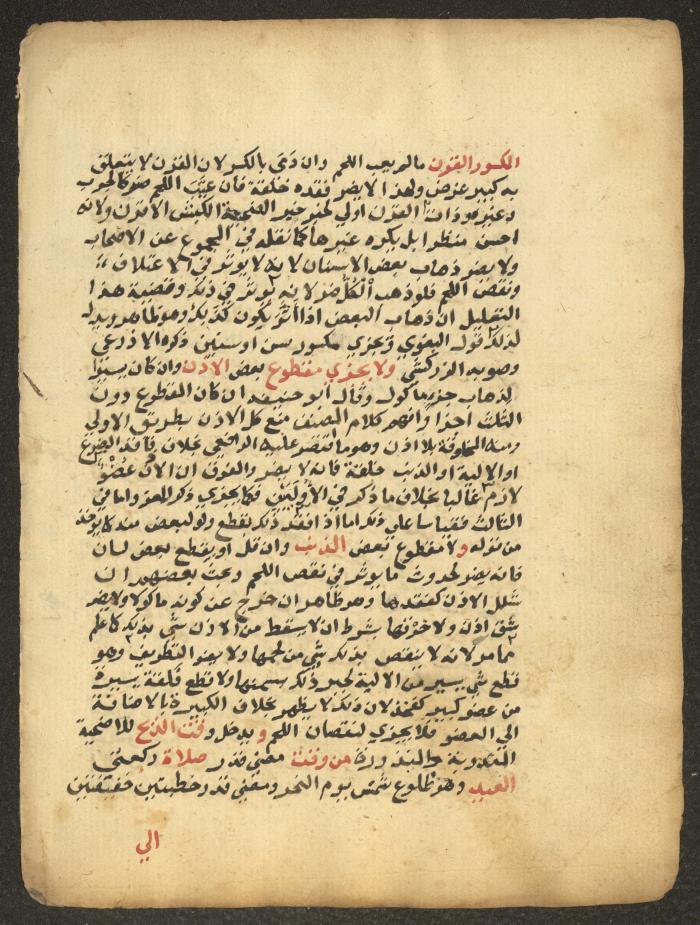 المكسور القرن ما لم يعب اللحم وان دمي بالكسر لان القرن لا يتعلق
به كبير غرض ولهذا لا يضر فقده خلقة فان عيب اللحم ضر كالجرب
وغيره وذات القرن اولى لخبر خير الضحية الكبش الاقرن ولانه
احسن منظرا بل يكره غيرها كما نقله في المجموع عن الاصحاب
ولا يضر ذهاب بعض الاسنان لانه لا يوثر في الاعتلاف
ونقص اللحم فلو ذهب الكل ضر لانه يوثر في ذلك وقضية هذا
التعليل ان ذهاب البعض اذا اثر يكون كذلك وهو ظاهر ويدل
لذلك قول البغوي ويجزي مكسور سن او سنين ذكره الاذرعي
وصوبه الزركشي ولا يجزي مقطوع بعض الاذن وان كان يسيرا
لذهاب جزء ماكول وقال ابو حنيفه ان كان المقطوع دون
الثلث اجزا وافهم كلام المصنف منع كل الاذن بطريق الاولى
ومنه المخلوقة بلا اذن وهو ما اقتصر عليه الرافعي بخلاف فاقد الضرع
او الالية او الذنب خلقة فانه لا يضر والفرق ان الاذن عضو
لازم غالبا بخلاف ما ذكر في الاوليين فكما يجزي ذكر المعز واما في
الثالث فقياسا على ذلك اما اذا فقد ذلك بقطع ولو لبعض منه كما يوخذ
من قوله ولا مقطوع بعض الذنب وان قل او بقطع بعض لسان
فانه يضر لحدوث ما يوثر في نقص اللحم وبحث بعضهم ان
شلل الاذن كفقدها وهو ظاهر ان خرج عن كونه ماكولا ولا يضر
شق اذن ولا خرقها بشرط ان لا يسقط من الاذن شي بذلك كما علم
مما مر لانه لا ينقص بذلك شي من لحمها ولا يضر التطريف وهو
قطع شي يسير من الالية لجبر ذلك بسمنها ولا قطع فلقة يسيرة
من عضو كبير كفخذ لان ذلك لا يظهر بخلاف الكبيرة بالاضافة
الى العضو فلا يجزي لنقصان اللحم ويدخل وقت الذبح للاضحية
المندوبة والمنذورة من وقت مضي قدر صلاة ركعتي
العيد وهو طلوع شمس يوم النحر ومضي قدر خطبتين خفيفتين
الى